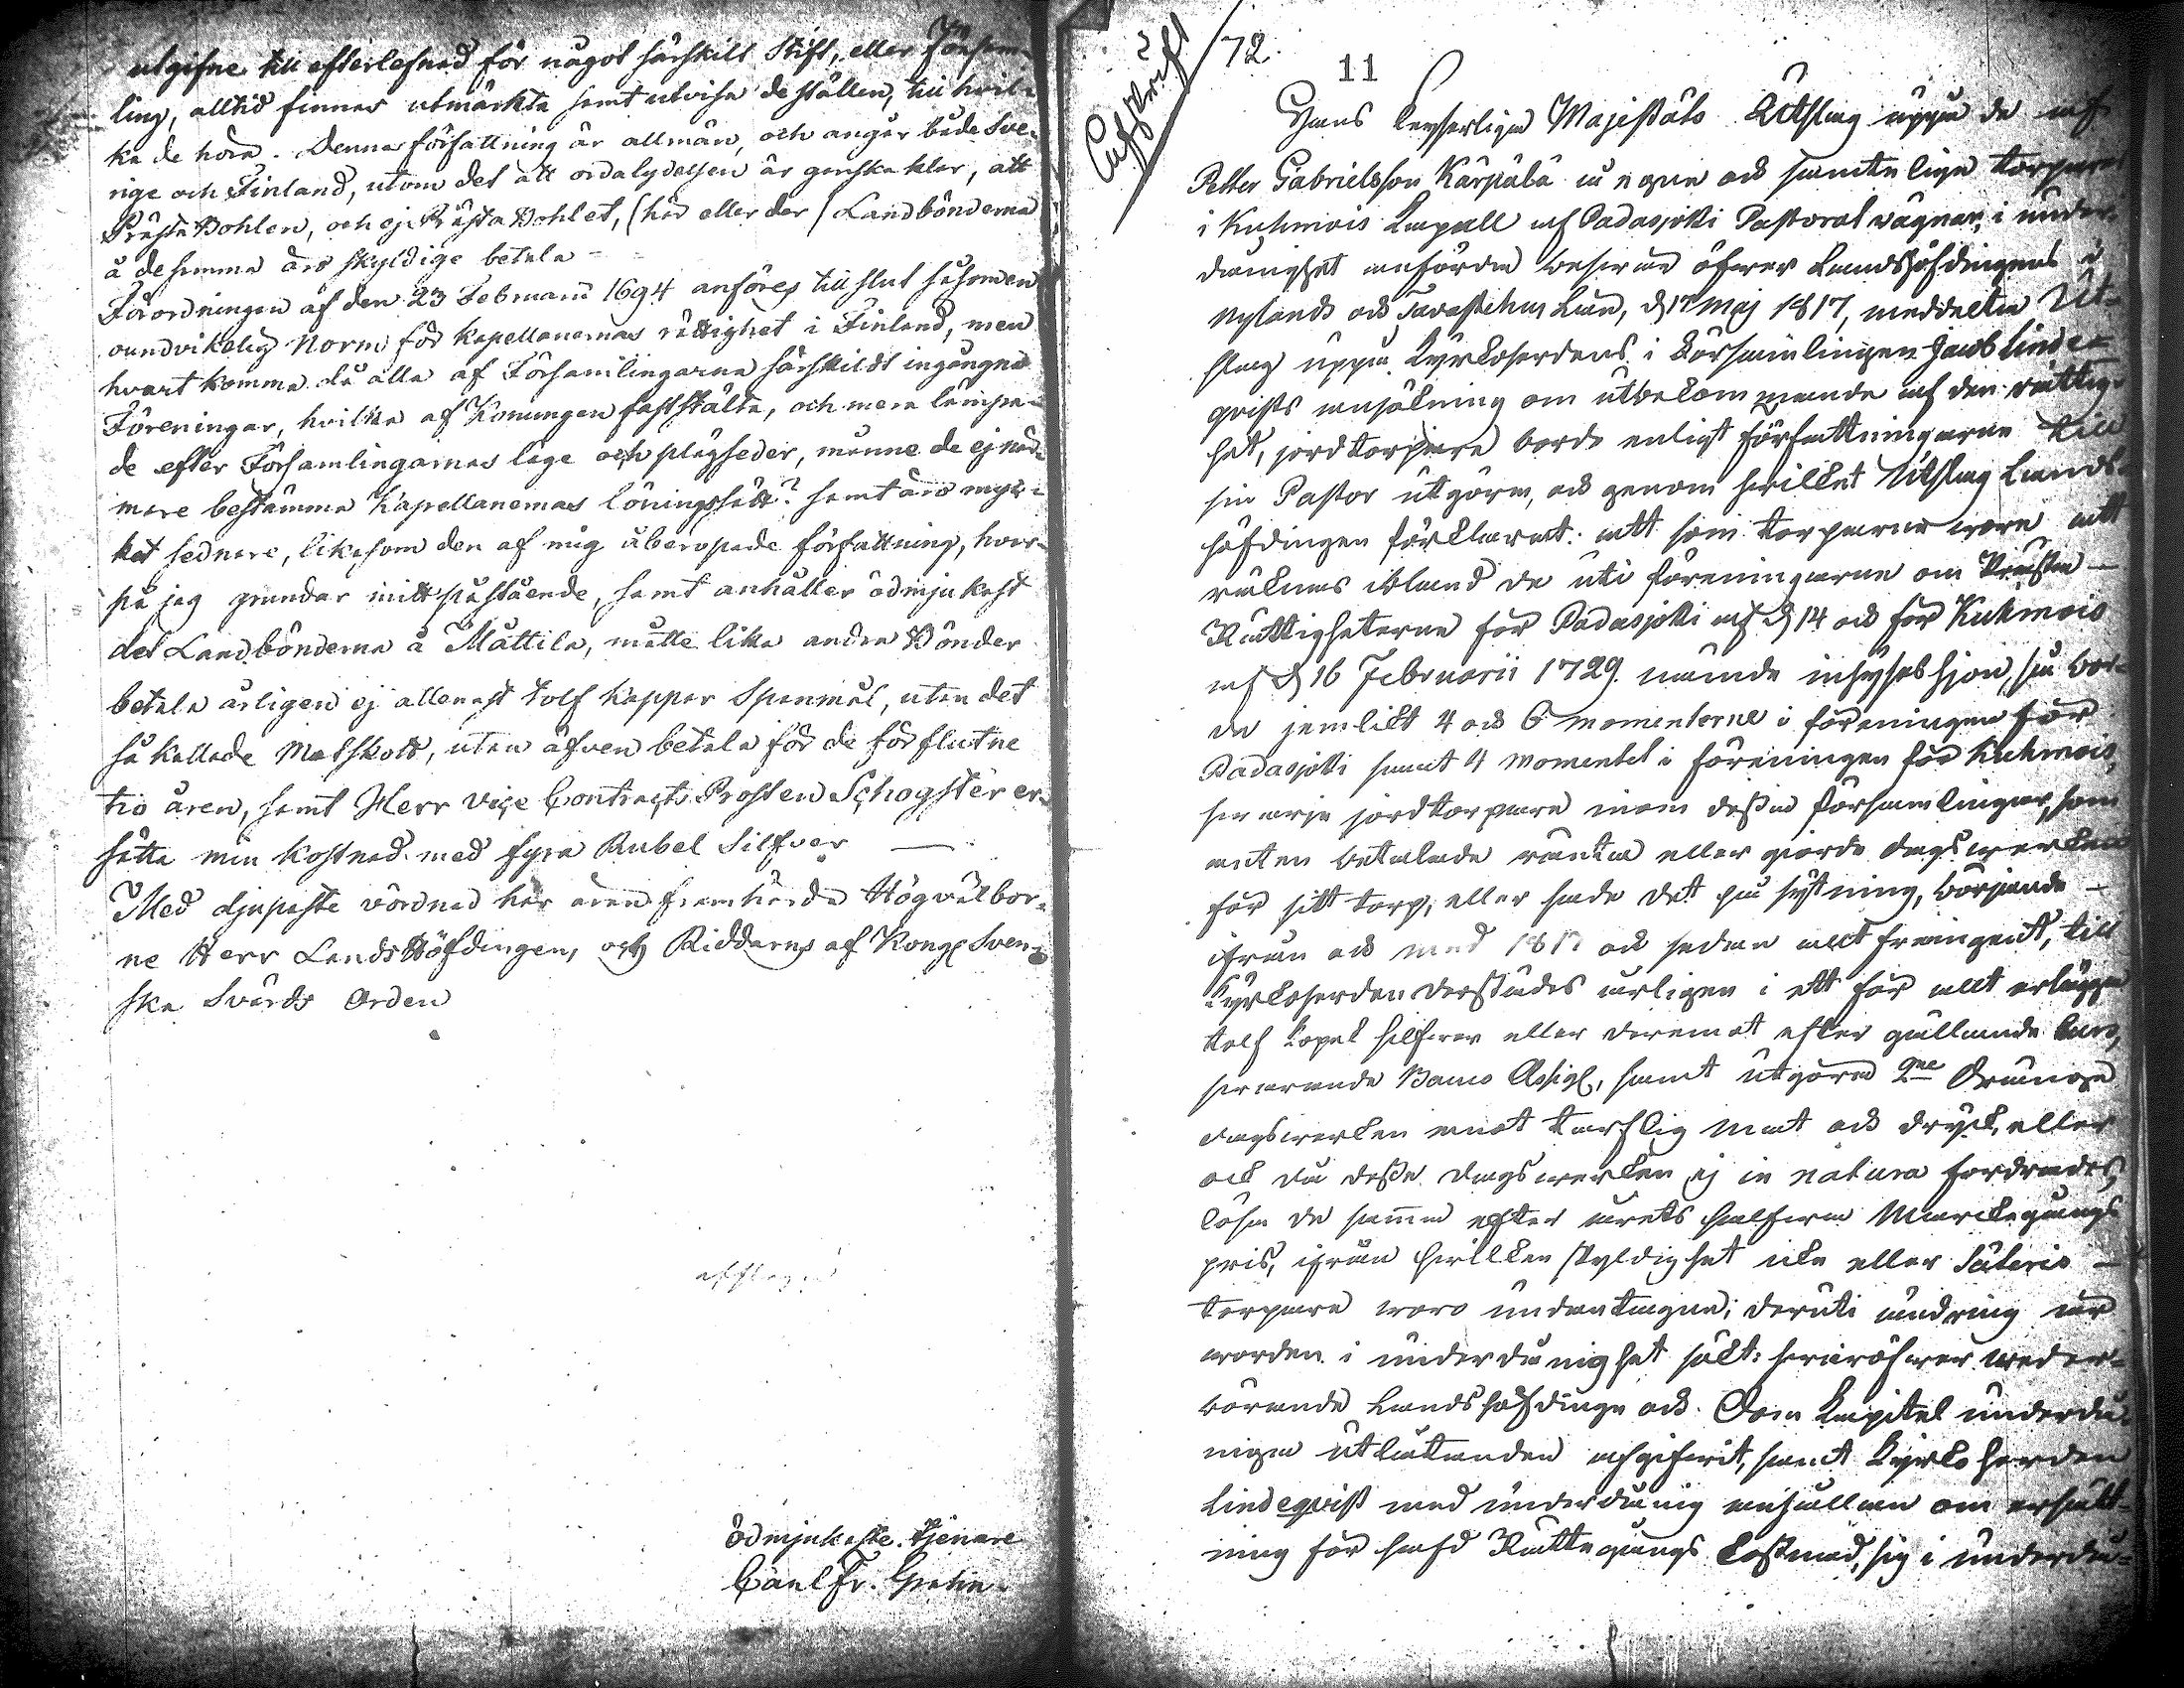 utgifne till efterlefnad för något särskilt Stift, eller Försam-
ling, alltid finnas utmärkta samt utvisa de ställen, till hvil-
ka de höra. Denna författning är allmän, och angår både Sve-
rige och Finland, utom det att ordalydelsen är ganska klar, att
Prästa Bohlen, och ej Prästa Bohlet, (här eller der) Landbönderna
å de samma äro skyldige betala
Förordningen af den 23 Februarii 1694 anföres till slut såsom en
oundvikelig Norm för kapellanernas rättighet i Finland, men
hvart komma då alla af Församlingarna särskildt ingångna
Föreningar, hvilka af Konungen fastställta, och mera lämpa-
de efter Församlingarnas läge och plägseder, månne de ej när-
mare bestämma Kapellanernas löningssätt? samt äro myc-
ket sednare, likasom den af mig åberopade författning, hvar-
på jag grundar mitt påstående, samt anhåller ödmjukast
det Landbönderna å Mattila, måtte lika andra Bönder
betala årligen ej allenast tolf kappar Spanmål, utan det
så kallade Matskott, utan äfven betala för de förflutne
tio åren, samt Herr Vice Contracts Prosten Schogster er-
sätta min kostnad med fyra Rubel Silfver
Med djupaste vördnad har äran framhärda Högvälbor-
ne Herr Lands Höfdingens och Riddarens af Kongl Sven-
ska Svärds Orden
ödmjukaste tjenare
Carl Fr.
Afskrift
72.
11
Hans Keyserliga Majestäts Utslag uppå de af
Petter Gabrielsson Kärpälä å egna och samtelige torpares
i Kuhmois Kapell af Padasjoki Pastorat vägnar, i under-
dånighet anförda besvär öfver Landshöfdingens i
Nylands och Tavastehus Län, d 17 Maj 1817, meddelta Ut-
slag uppå Kyrkoherdens i Församlingen Jacob Linde-
qvists ansökning om utbekommande af den rättig-
het, jordtorpare borde enligt författningarne till
sin Pastor utgöra, och genom hvilket Utslag Lands-
höfdingen förklarat: att som torparne vore att
räknas ibland de uti föreningarne om Prästa-
Rättigheterne för Padasjoki af d 14 och för Kuhmois
af d 16 Februarii 1729 nämnde inhyses hjon, så bor-
de jemlikt 4 och 6 momenterne i föreningen för
Padasjoki samt 4 momentet i föreningen för Kuhmois,
hvarje jordtorpare inom dessa församlingar, som
antingen betalade ränta eller gjorde dagsverken
för sitt torp, eller hade det på sytning, börjande
ifrån och med 1817 och sedan allt framgent, till
Kyrkoherden derstädes årligen i ett för allt erlägga
tolf kopek silfver eller deremot efter gällande kurs,
svarande Banco Assigl, samt utgöra 2ne drängs
dagsverken emot tarflig mat och dryck, eller
ock då dessa dagsverken ej in natura fordrades,
lösa de samma efter årets halfva Markegångs
pris, ifrån hvilken skyldighet icke eller Säteri-
torpare voro undantagne; deruti ändring är
worden i underdånighet sökt: hvaröfver weder-
börande Landshöfdinge och Dom Kapitel underdå-
niga utlåtanden afgifvit, samt Kyrkoherden
Lindeqvist med underdånig anhållan om ersätt-
ning för hafd Rättegångs kostnad, sig i underdå-